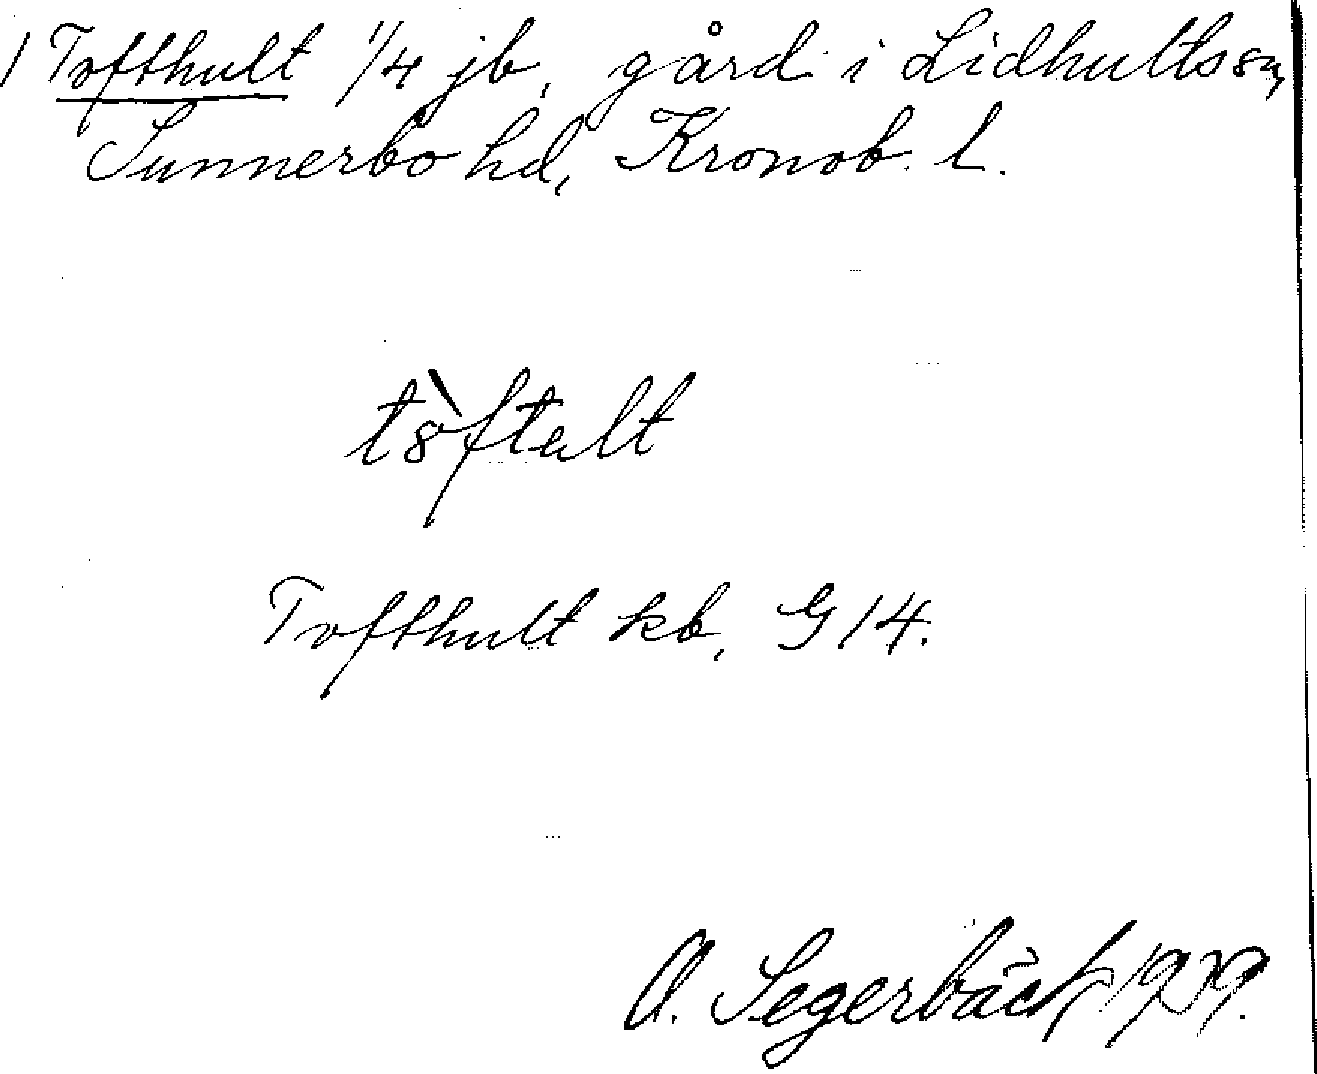 1 Tofthult 1/4 jb, gård i Lidhults sn,
Sunnerbo hd, Kronob. l.
tòftult
Tofthult kb, G 14.
A. Segerbäck 1929.